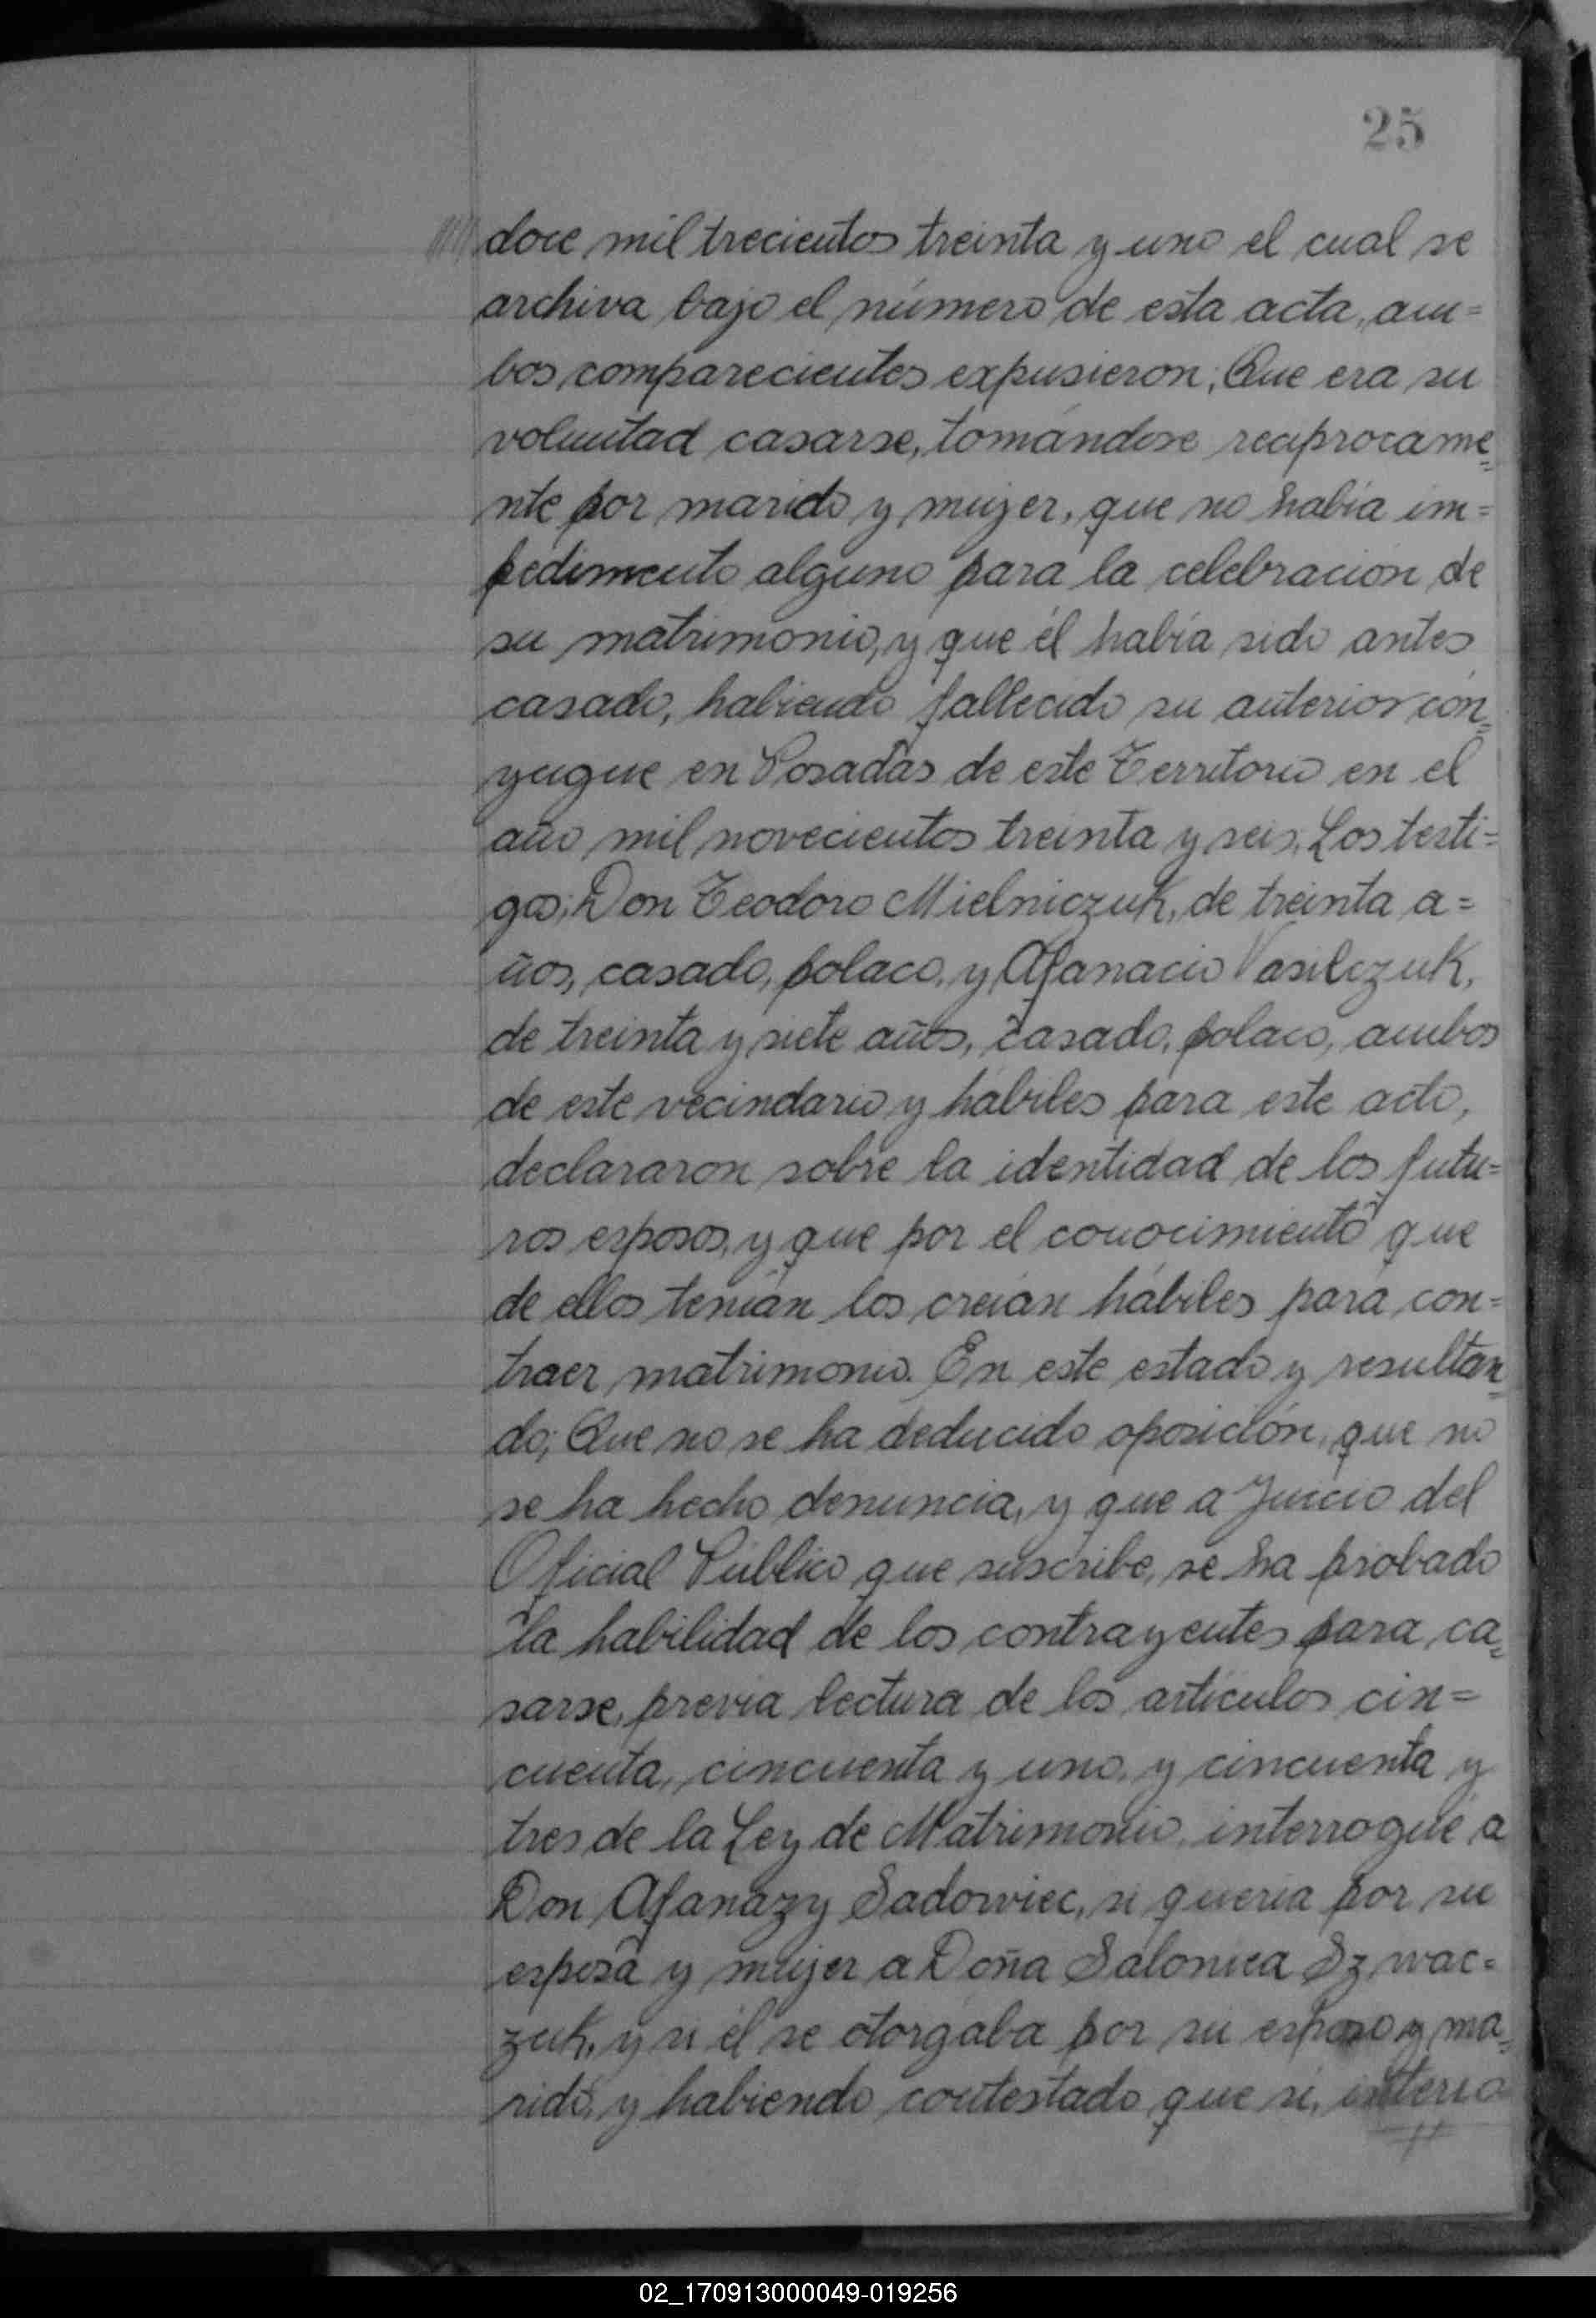 25
doce mil trecientos treinta y uno el cual se
archiva bajo el número de esta acta, am=
bos comparecientes expusieron; Que era su
voluntad casarse, tomándose reciprocame=
nte por marido y mujer, que no había im=
pedimento alguno para la celebración de
su matrimonio, y que él había sido antes
casado, habiendo fallecido su anterior cón=
yugue en Posadas de este Territorio en el
año mil novecientos treinta y seis. Los testi=
gos; Don Teodoro Mielniczuk, de treinta a=
ños, casado, polaco, y Afanacio Vasilczuk,
de treinta y siete años, casado, polaco, ambos
de este vecindario y hábiles para este acto,
declararon sobre la identidad de los futu=
ros esposos, y que por el conocimiento que
de ellos tenían los creían hábiles para con=
traer matrimonio. En este estado y resultan=
do; Que no se ha deducido oposición, que no
se ha hecho denuncia, y que a Juicio del
Oficial Público que suscribe, se ha probado
la habilidad de los contrayentes para ca=
sarse, previa lectura de los artículos cin=
cuenta, cincuenta y uno, y cincuenta y
tres de la Ley de Matrimonio, interrogué a
Don Afanazy Sadowiec, si quería por su
esposa y mujer a Doña Salomea Szwac=
zuk, y si él se otorgaba por su esposo y ma=
rido, y habiendo contestado que si, interro
02_170913000049-019256